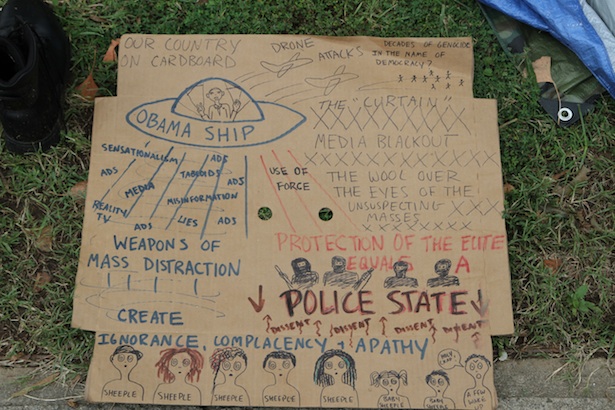 OUR COUNTRY
ON CARDBOARD
DRONE
ATTACKS
DECADES OF GENOCIDE
IN THE NAME OF
DEMOCRACY?
OBAMA SHIP
THE "CURTAIN"
XXXXXXXXXXX
MEDIA BLACKOUT
XXXXXXXXXXXXX
THE WOOL OVER
THE EYES OF THE
UNSUSPECTING XXX
MASSES
SENSATIONALISM
ADS
ADS
MEDIA
TABLOIDS
ADS
REALITY
TV
MISINFORMATION
ADS
LIES
ADS
USE OF
FORCE
WEAPONS OF
MASS DISTRACTION
CREATE
PROTECTION OF THE ELITE
EQUALS A
POLICE STATE
DISSENT DISSENT DISSENT DISSENT
IGNORANCE, COMPLACENCY + APATHY
SHEEPLE
SHEEPLE
SHEEPLE
SHEEPLE
SHEEPLE
BABY
SHEEPLE
BABY
SHEEPLE
A FEW